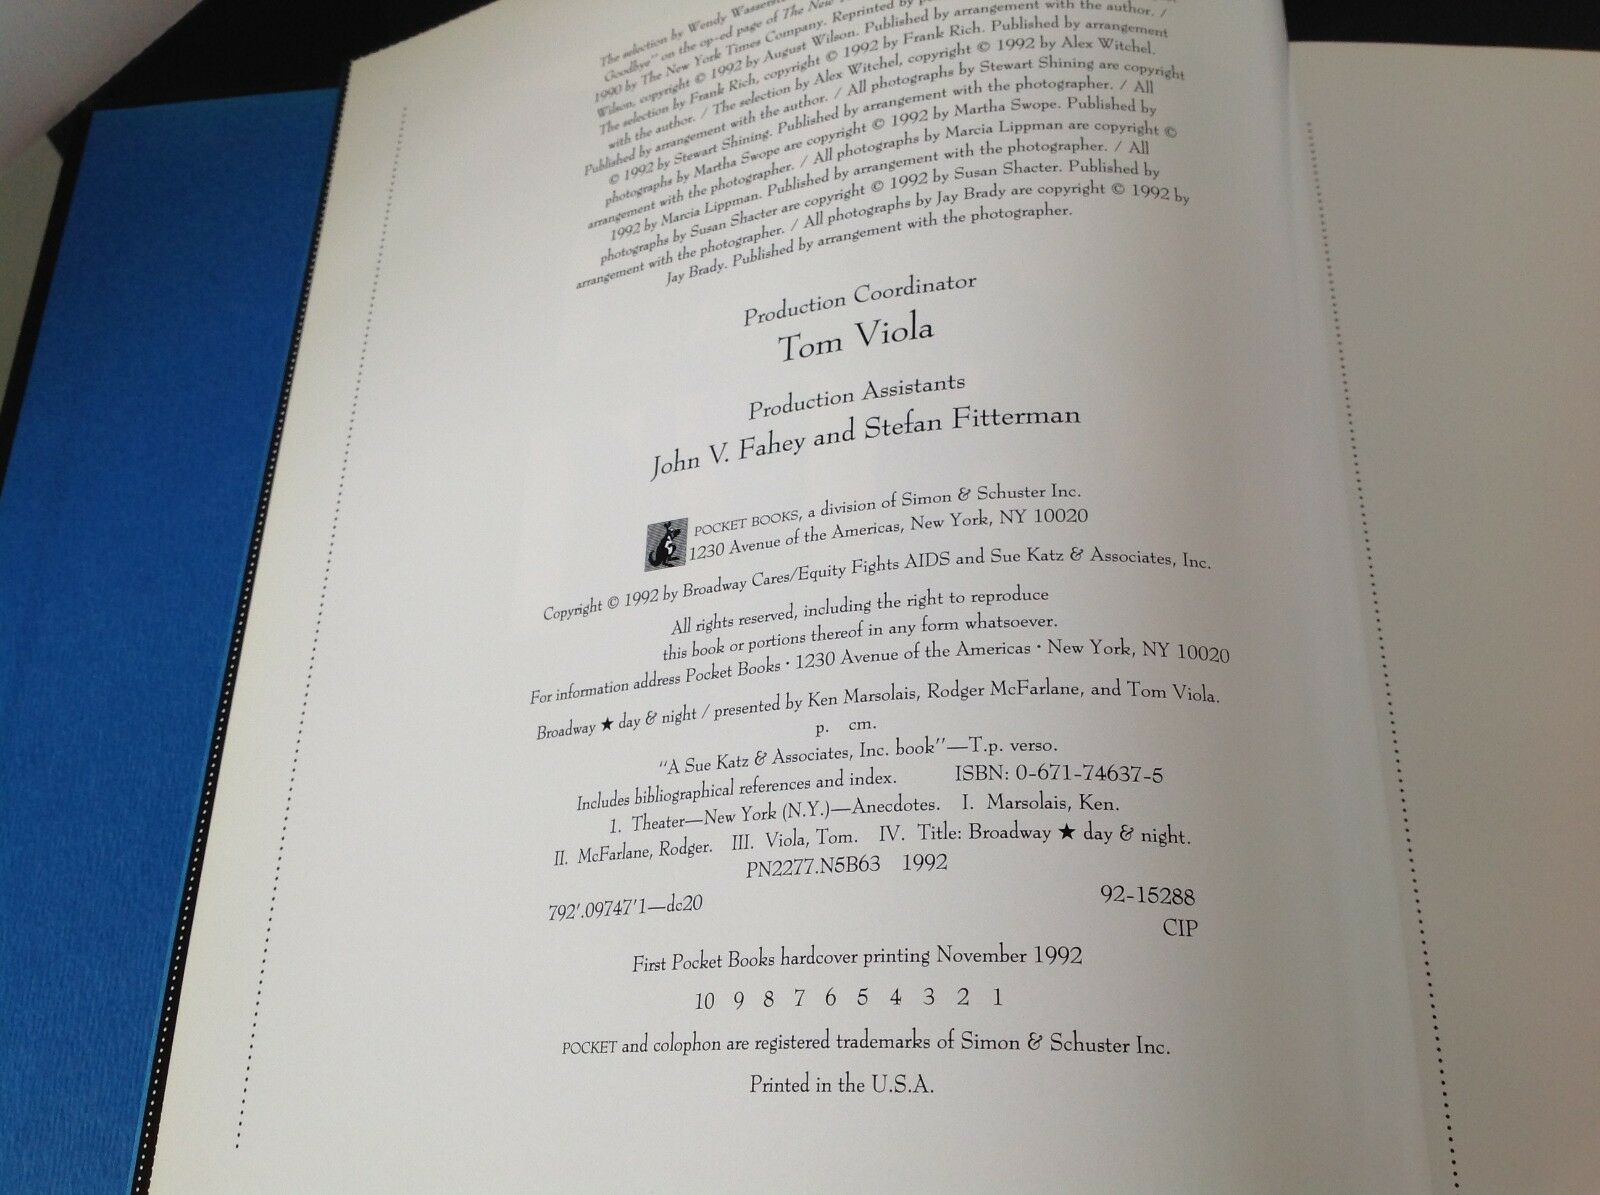 The selection by Wendy
Goodbye" on the op-ed page of The New
1990 by The New York Times Company. Reprinted by
Wilson, copyright © 1992 by August Wilson. Published by arrangement with the author. /
The selection by Frank Rich, copyright © 1992 by Frank Rich. Published by arrangement
with the author. / The selection by Alex Witchel, copyright © 1992 by Alex Witchel.
Published by arrangement with the author. / All photographs by Stewart Shining are copyright
© 1992 by Stewart Shining. Published by arrangement with the photographer. / All
photographs by Martha Swope are copyright © 1992 by Martha Swope. Published by
arrangement with the photographer. / All photographs by Marcia Lippman are copyright ©
1992 by Marcia Lippman. Published by arrangement with the photographer. / All
photographs by Susan Shacter are copyright © 1992 by Susan Shacter. Published by
arrangement with the photographer. / All photographs by Jay Brady are copyright © 1992 by
Jay Brady. Published by arrangement with the photographer.
Production Coordinator
Tom Viola
Production Assistants
John V. Fahey and Stefan Fitterman
POCKET BOOKS, a division of Simon & Schuster Inc.
1230 Avenue of the Americas, New York, NY 10020
Copyright © 1992 by Broadway Cares/Equity Fights AIDS and Sue Katz & Associates, Inc.
All rights reserved, including the right to reproduce
this book or portions thereof in any form whatsoever.
For information address Pocket Books · 1230 Avenue of the Americas · New York, NY 10020
Broadway ★ day & night / presented by Ken Marsolais, Rodger McFarlane, and Tom Viola.
p. cm.
"A Sue Katz & Associates, Inc. book"—T.p. verso.
Includes bibliographical references and index. ISBN: 0-671-74637-5
1. Theater—New York (N.Y.)—Anecdotes. I. Marsolais, Ken.
II. McFarlane, Rodger. III. Viola, Tom. IV. Title: Broadway ★ day & night.
PN2277.N5B63 1992
792'.09747'1—dc20 92-15288
CIP
First Pocket Books hardcover printing November 1992
10 9 8 7 6 5 4 3 2 1
POCKET and colophon are registered trademarks of Simon & Schuster Inc.
Printed in the U.S.A.